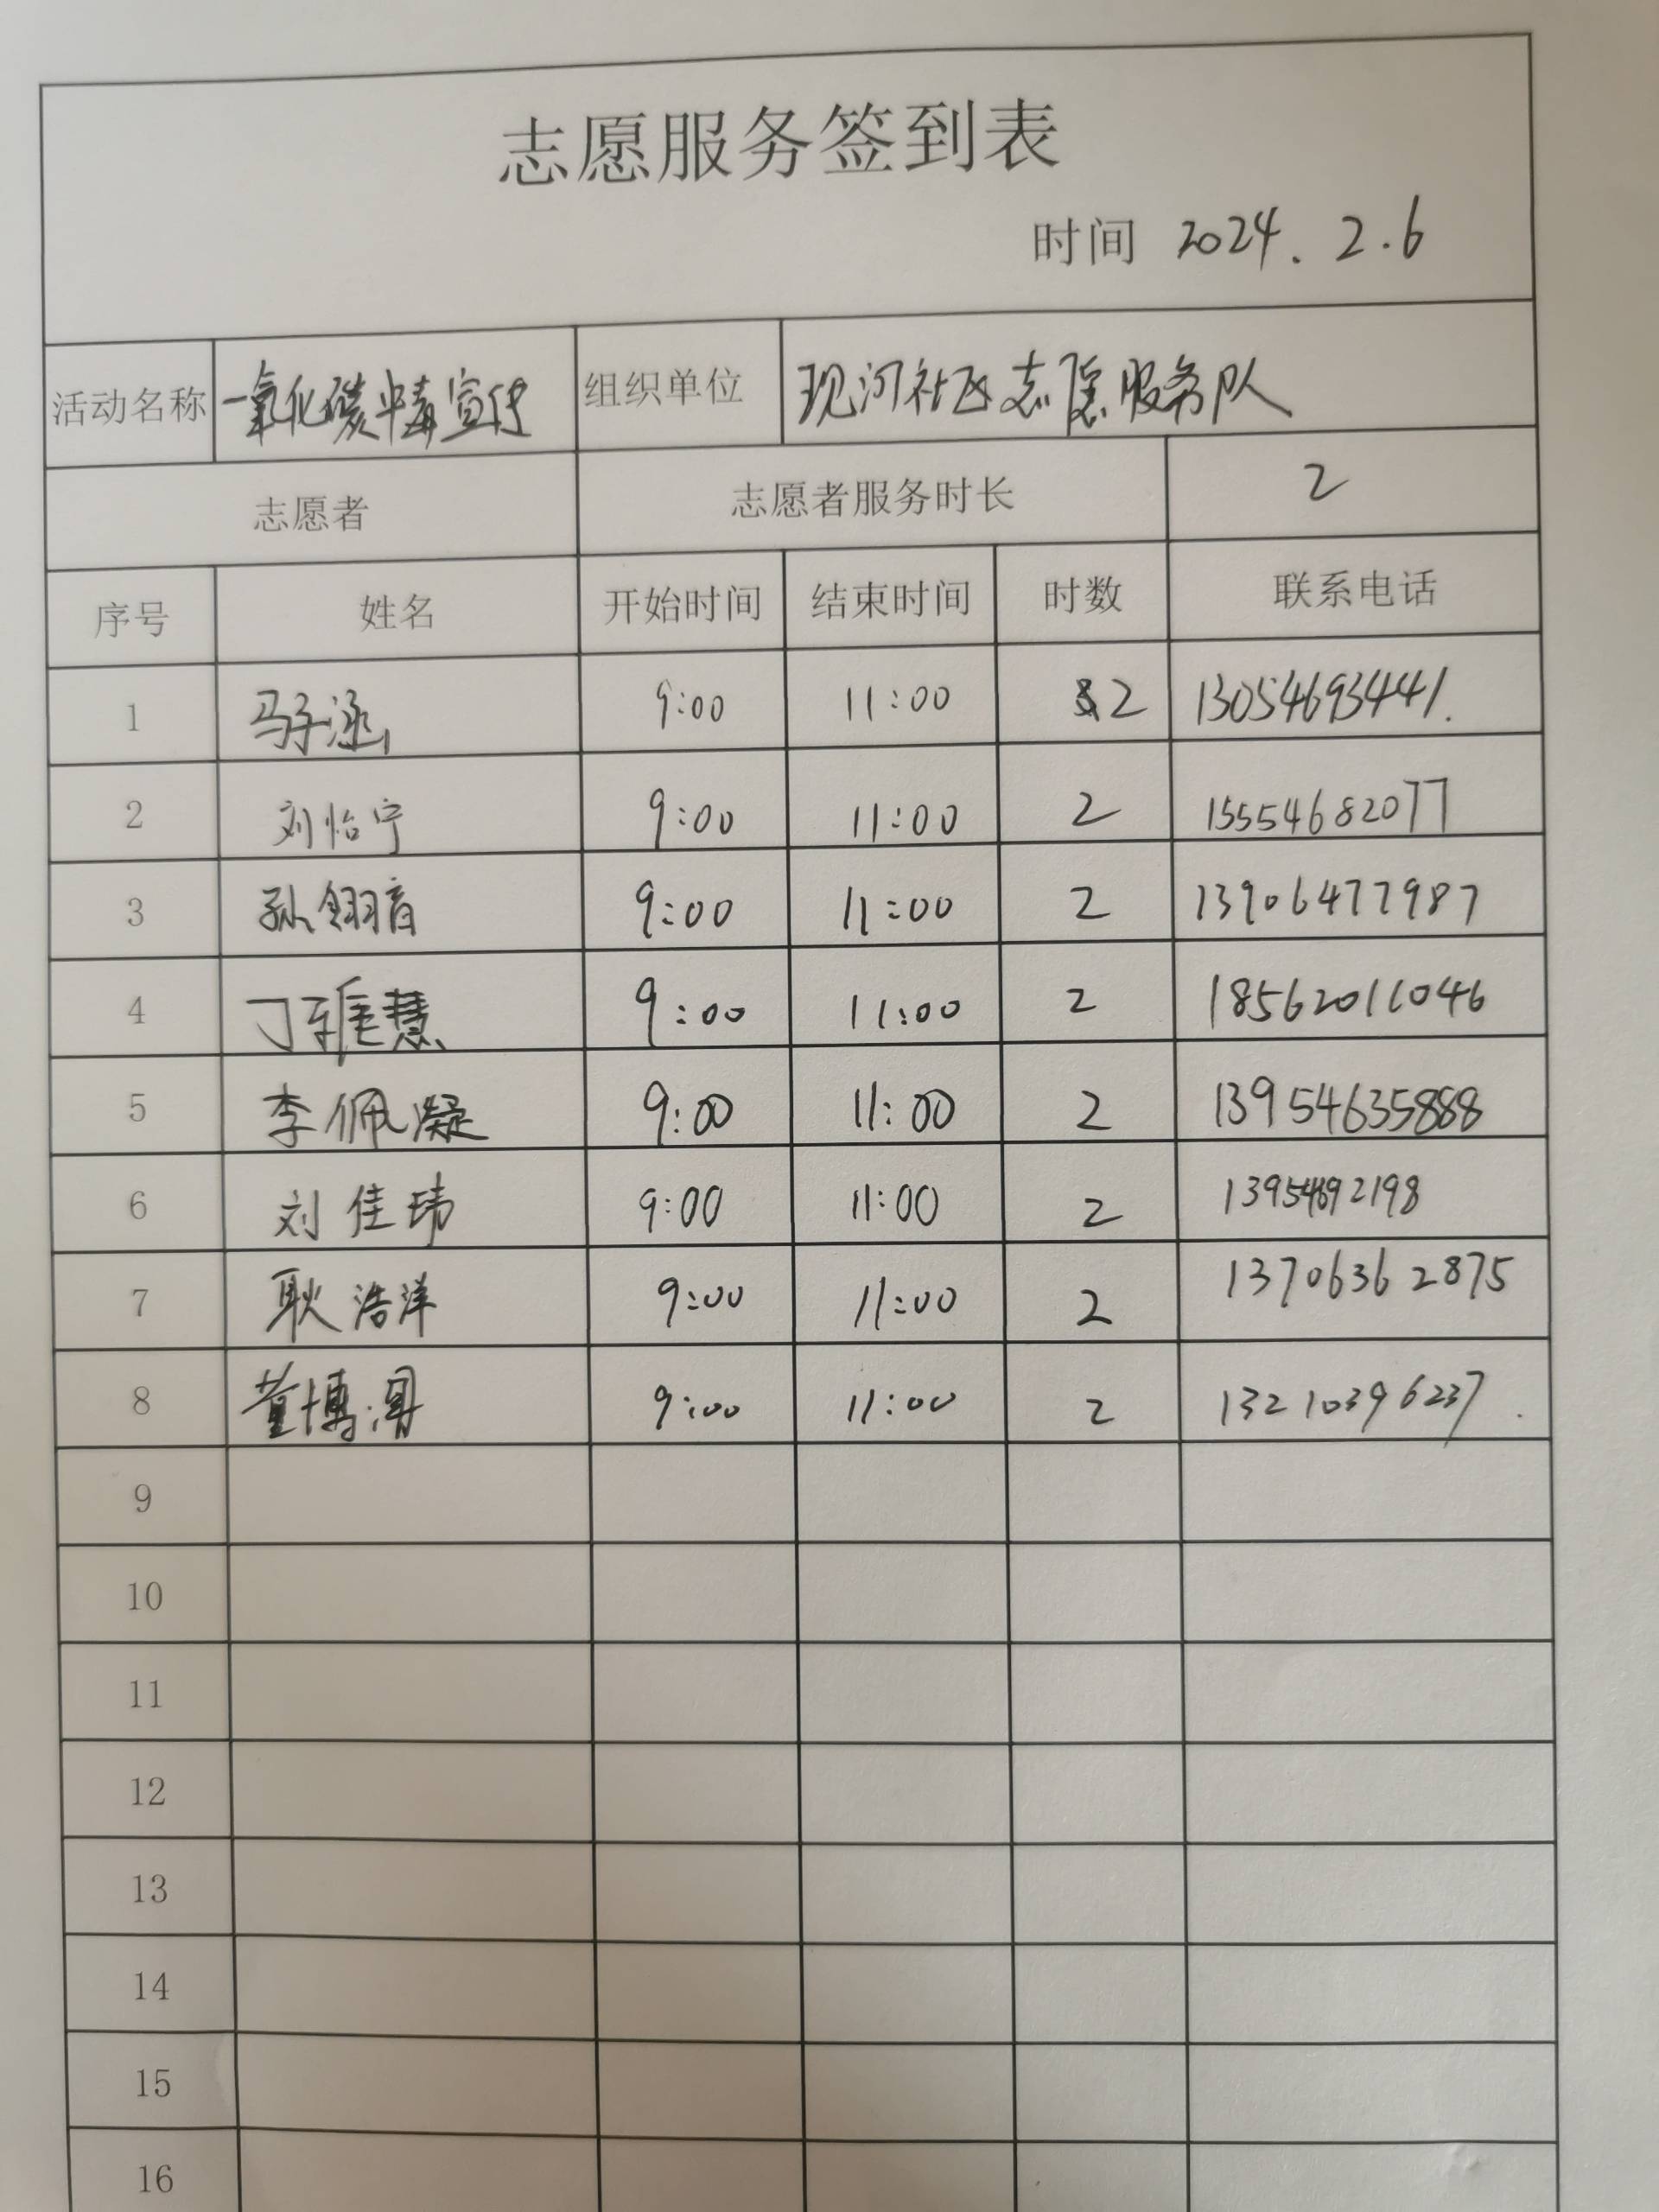 志愿服务签到表
时间 2024.2.6
活动名称 一氧化碳中毒宣传 组织单位 现河社区志愿服务队
志愿者 志愿者服务时长 2
序号 姓名 开始时间 结束时间 时数 联系电话
1 马子涵 9:00 11:00 2 13054693441.
2 刘怡宁 9:00 11:00 2 15554682077
3 孙翎音 9:00 11:00 2 13906477987
4 丁雅慧 9:00 11:00 2 18562011046
5 李佩凝 9:00 11:00 2 13954635888
6 刘佳玮 9:00 11:00 2 13954692198
7 耿浩洋 9:00 11:00 2 13706362875
8 9:00 11:00 2 13210396237.
9
10
11
12
13
14
15
16